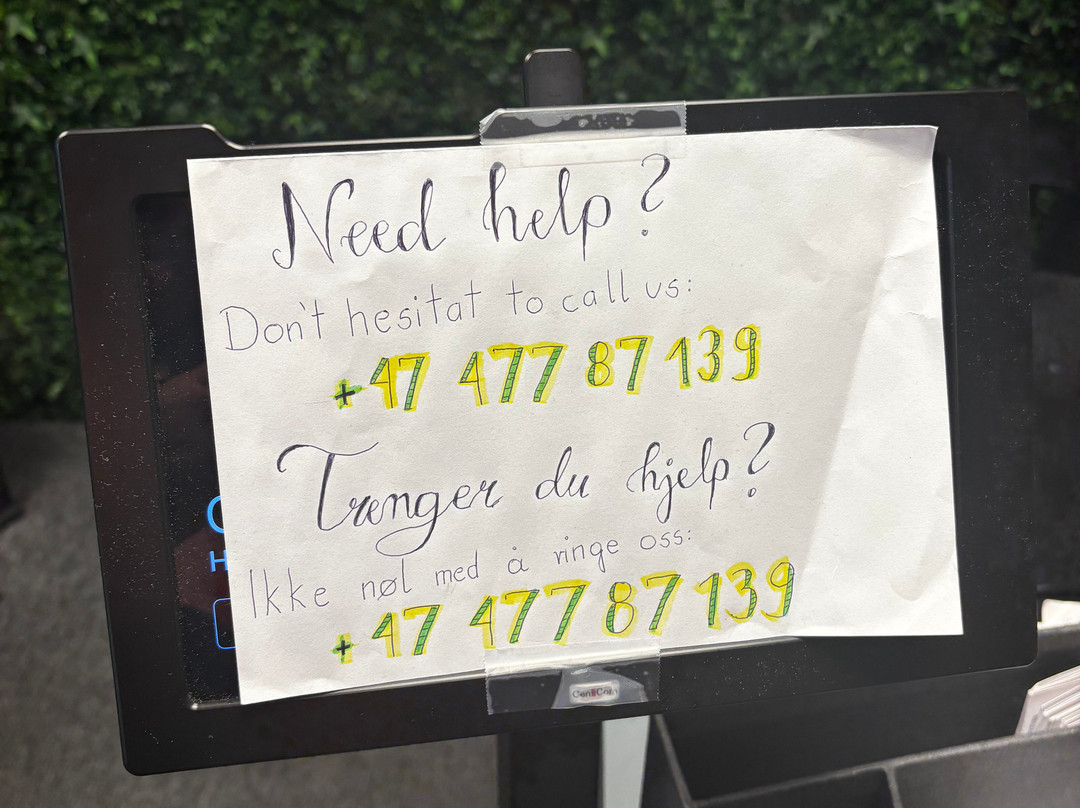 Need help?
Don't hesitat to call us:
+47 477 87 139
Trenger du hjelp?
Ikke nøl med å ringe oss:
+47 477 87 139
H